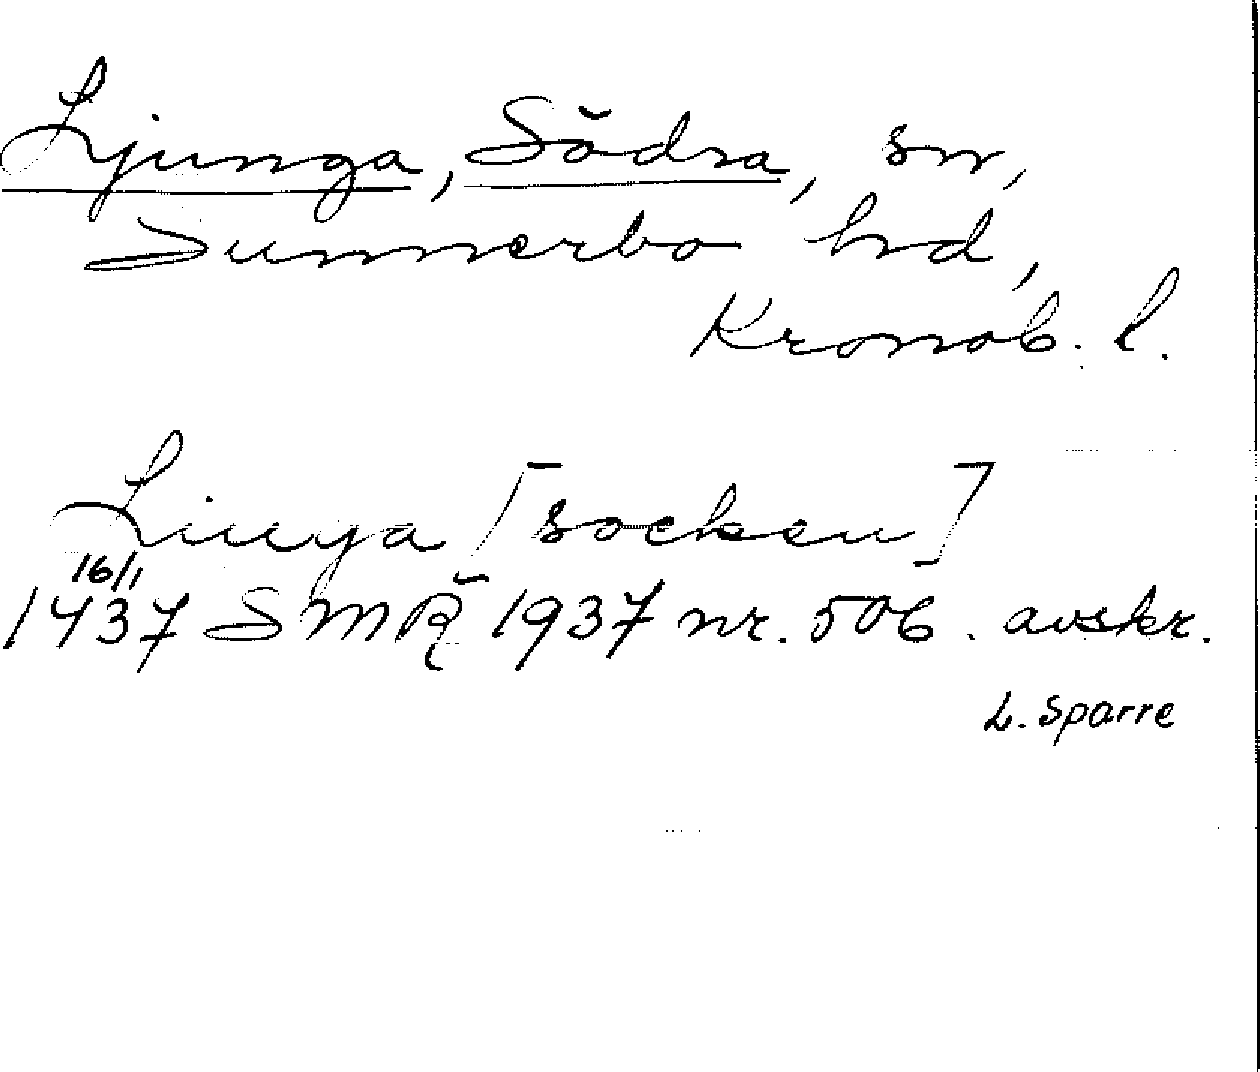 Ljunga, Södra, sn,
Sunnerbo hd,
Kronob. l.
Liunga [socken]
16/1
1437 SMR 1937 nr. 506. avskr.
L. Sparre